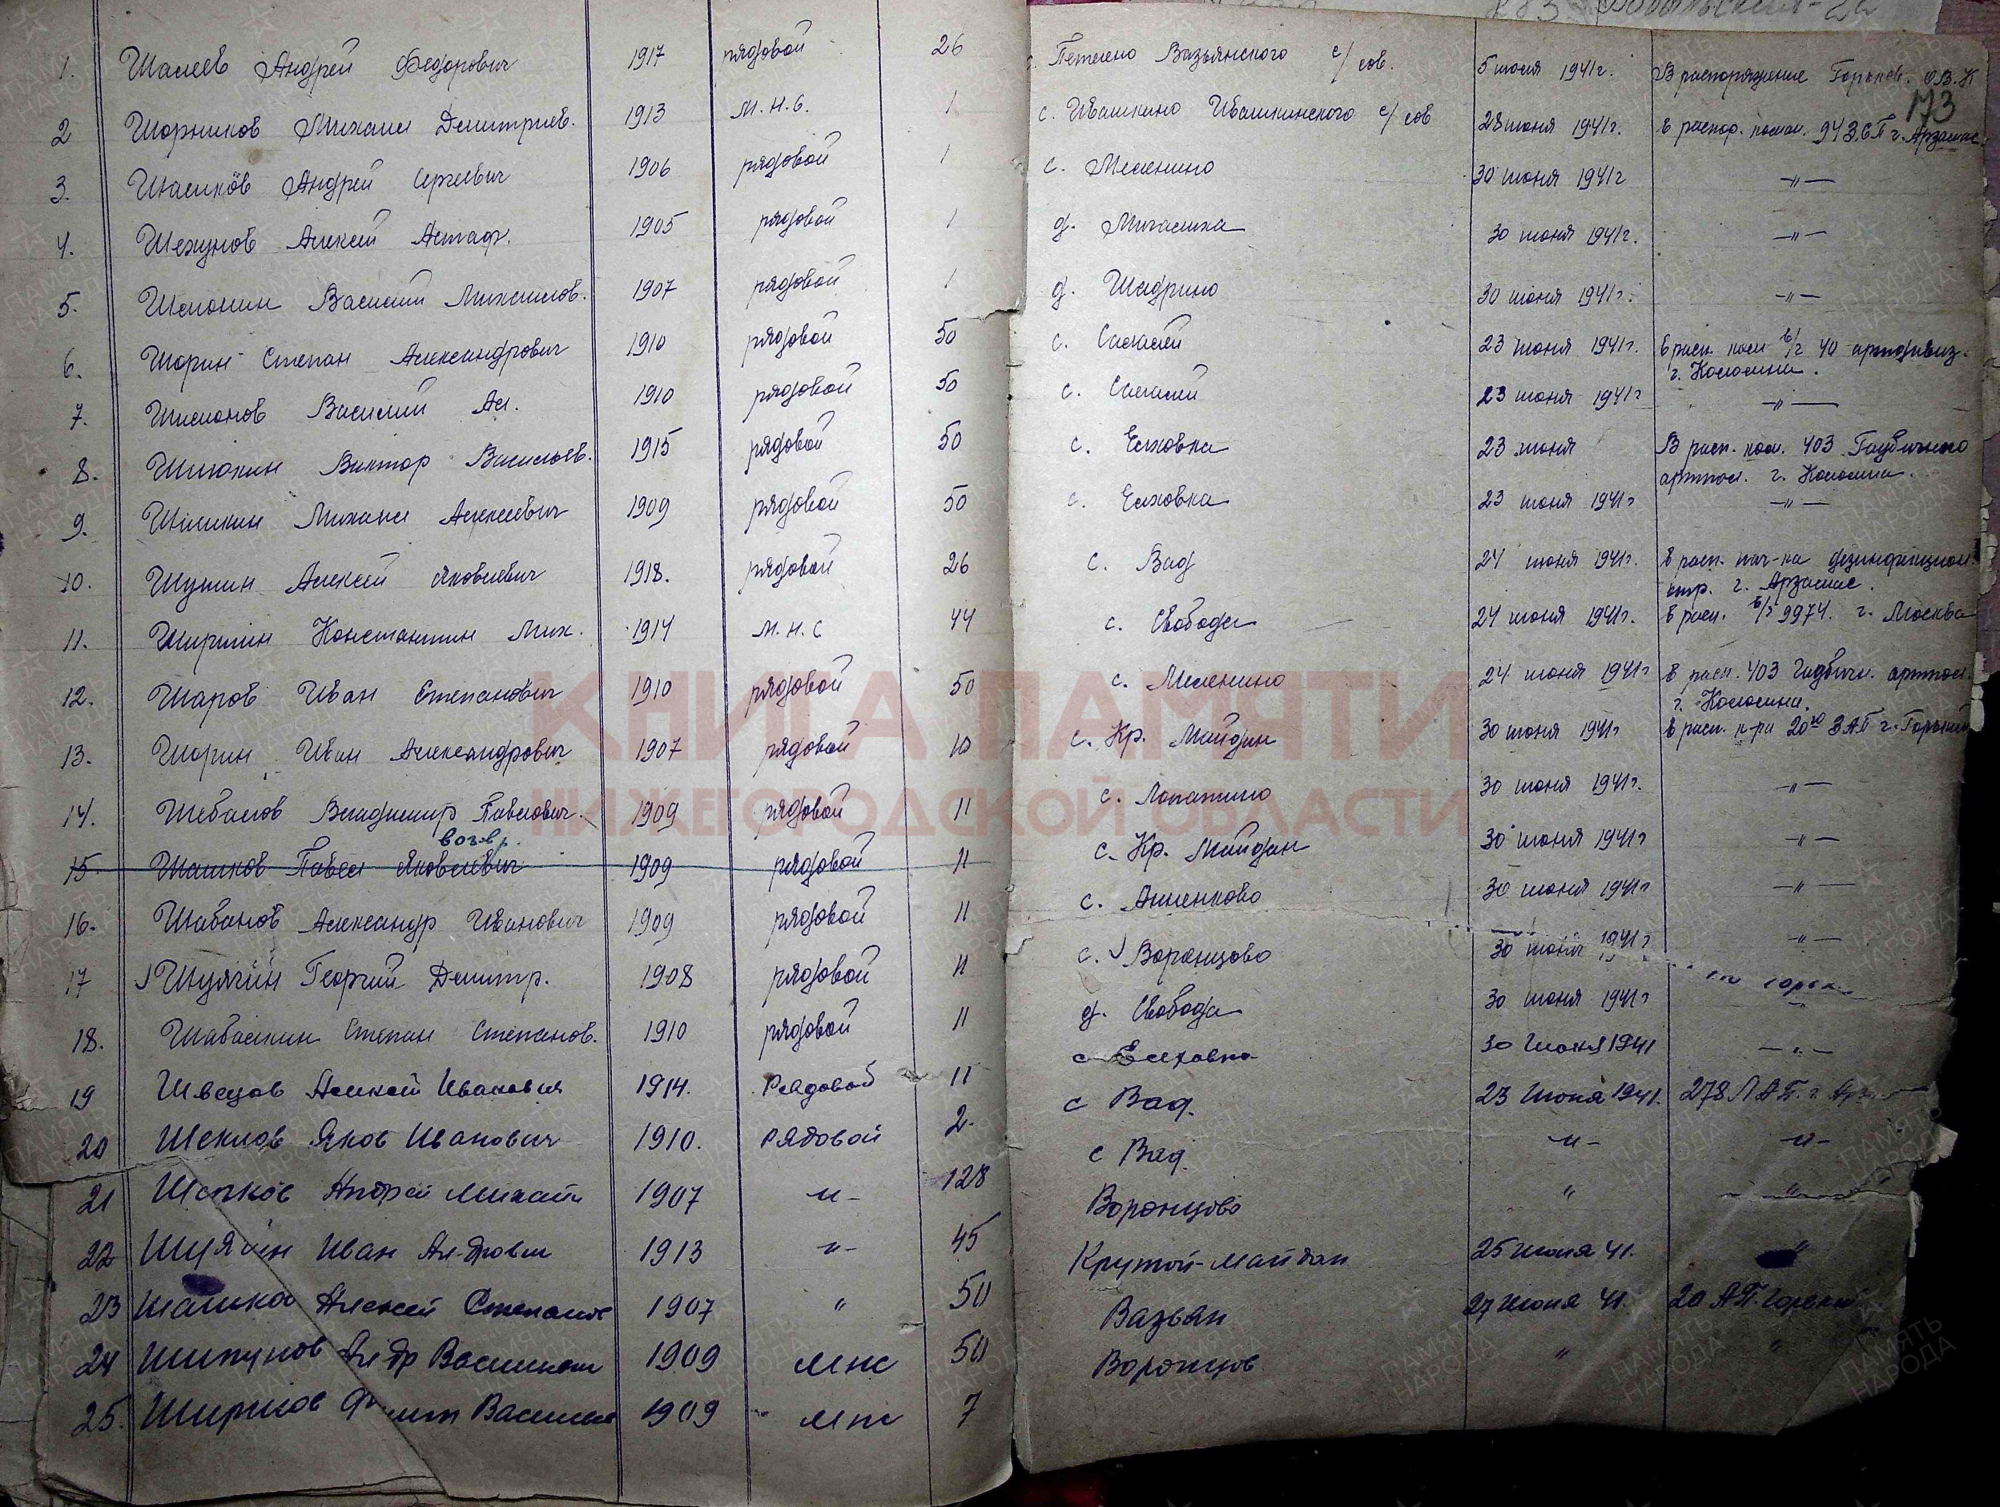 173
1. Шалеев Андрей Федорович 1917 рядовой 26 Петлено Вазьянского с/сов. 5 июля 1941г. В распоряжение Горьков. О.В.К
2 Шорников Михаил Дмитриев. 1913 м.н.с. 1 с. Ивашкино Ивашкинского с/сов 28 июня 1941г. в распор. 943.СП г. Арзамас.
3. Андрей Сергеевич 1906 рядовой 1 с. Меленино 30 июня 1941г —"—
4. Шехунов Алексей Астаф. 1905 рядовой 1 д. 30 июня 1941г. —"—
5. Василий Михайлов. 1907 рядовой 1 д. Шадрино 30 июня 1941г. —"—
6. Шорин Степан Александрович 1910 рядовой 50 с. Салалей 23 июня 1941г. в расп. в/г 40 артдивиз.
г. Коломна.
7. Василий Ал. 1910 рядовой 50 с. Салалей 23 июня 1941г —"—
8. Виктор Васильев. 1915 рядовой 50 с. Елховка 23 июня В расп. ком. 403 Гаубичного
артпол. г. Коломна.
9. Михаил Алексеевич 1909 рядовой 50 с. Елховка 23 июня 1941г —"—
10. Шутин Алексей Яковлевич 1918. рядовой 26 с. Вад 24 июня 1941г. в расп. нач-ка дезинфекцион.
г. Арзамас.
11. Константин Мих. 1914 м.н.с 44 с. Свобода 24 июня 1941г. в расп. в/г 9974. г. Москва
12. Шаров Иван Степанович 1910 рядовой 50 с. Меленино 24 июня 1941г в расп. 403 Гаубичн. артпол.
г. Коломна.
13. Шорин Иван Александрович 1907 рядовой 10 с. Кр. Майдан 30 июня 1941г в расп. к-ра 20го ЗАП г. Горький
14. Шебалов Владимир Павлович. 1909 рядовой 11 с. Лопатино 30 июня 1941г. —"—
возвр.
15 Шашков Павел Яковлевич 1909 рядовой 11 с. Кр. Майдан 30 июня 1941г —"—
16. Шабанов Александр Иванович 1909 рядовой 11 с. Анненково 30 июня 1941г —"—
17 Георгий Дмитр. 1908 рядовой 11 с. Воронцово 30 июня 1941г —"—
18. Шабалкин Степан Степанов. 1910 рядовой 11 д. Свобода 30 июня 1941г "
19 Швецов Алексей Иванович 1914. Рядовой 11 с Елховка 30 Июня 1941 —"—
20 Шеклов Яков Иванович 1910. рядовой 2. с Вад. 23 Июня 1941. 278 ЛАП. г.
21 Андрей Михайл 1907 -"- 128 с Вад. -"- -"-
22 Иван Ал-дрович 1913 -"- 45 Воронцово " "
23 Алексей Степанов 1907 " 50 Крутой-Майдан 25 Июня 41. "
24 Шипунов Ал-др Васильев 1909 мнс 50 Вазьян 27 Июня 41. 20 АП. Горький
25. Васильев 1909 мнс 7 Воронцов " "
КНИГА ПАМЯТИ
НИЖЕГОРОДСКОЙ ОБЛАСТИ
ПАМЯТЬ НАРОДА